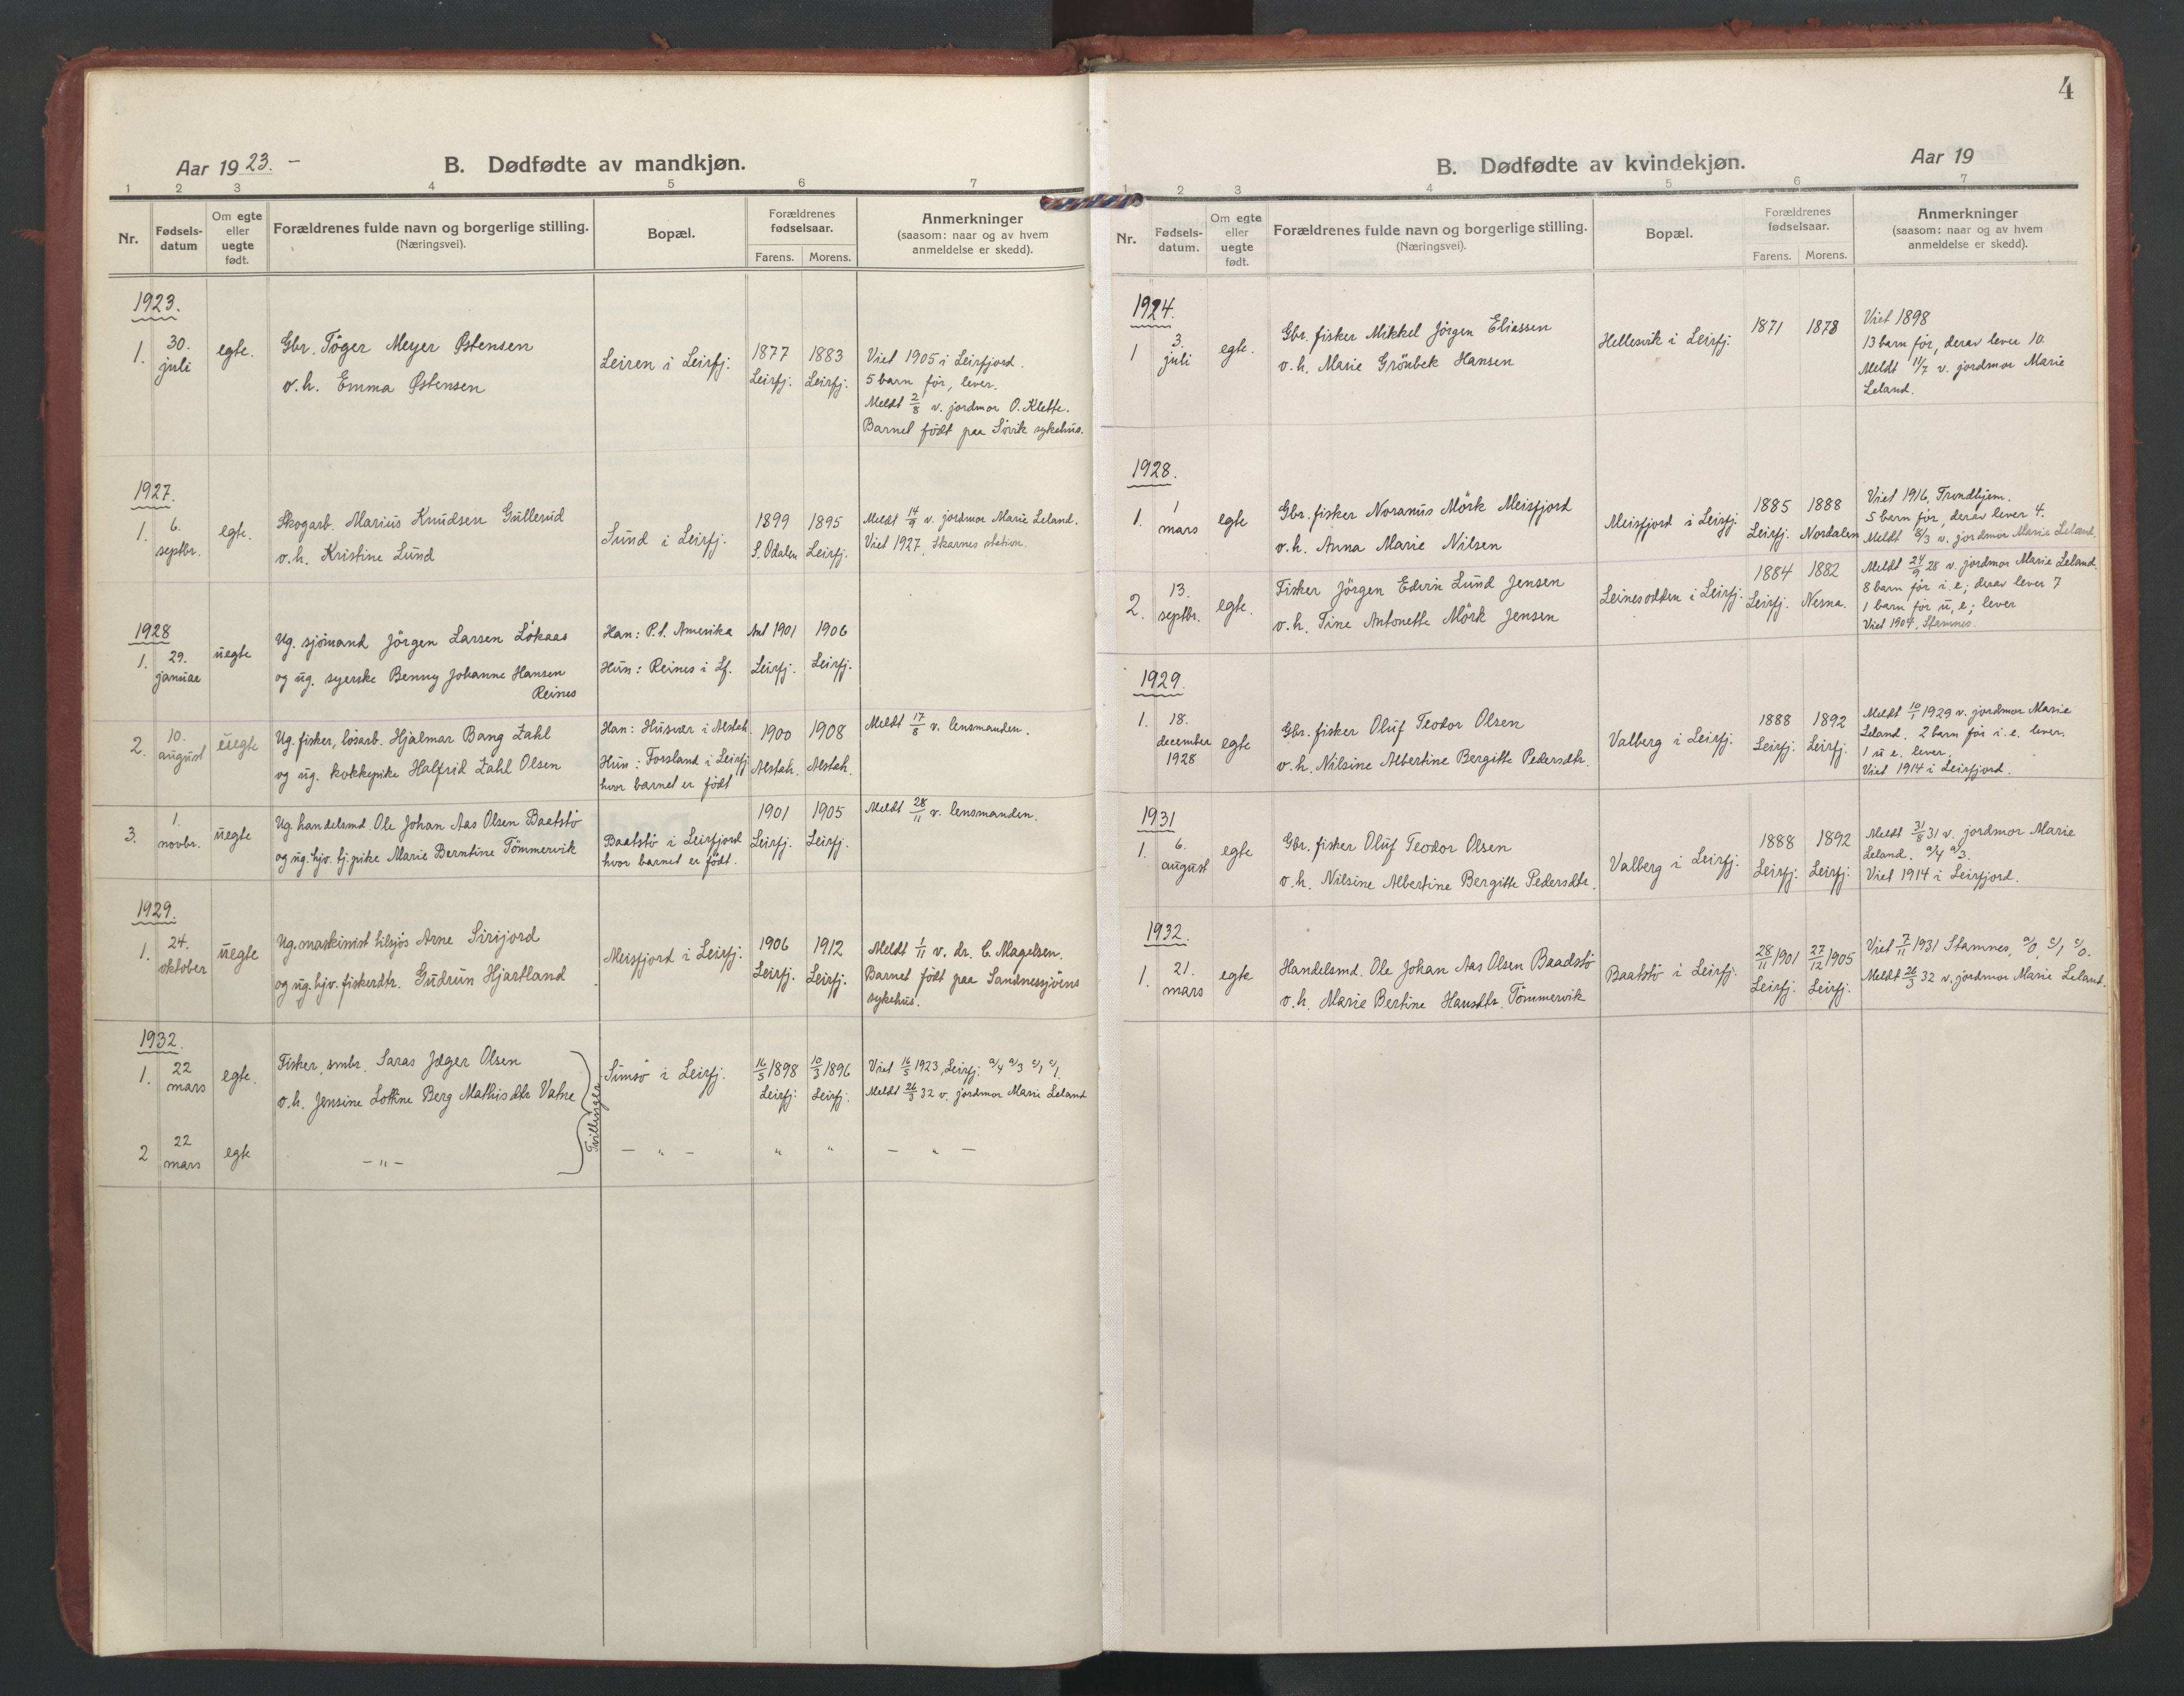 Aar 1923. –
B. Dødfødte av mandkjøn.
1 2 3 4 5 6 7
Nr.
Fødsels-
datum
Om egte
eller
uegte
født.
Forældrenes fulde navn og borgerlige stilling.
(Næringsvei).
Bopæl.
Forældrenes
fødselsaar.
Farens. Morens.
Anmerkninger
(saasom: naar og av hvem
anmeldelse er skedd).
1923.
1.
30.
juli
egte.
Gbr. Töger Meyer Østensen
o.h. Emma Østensen
Leiren i Leirfj.
1877 1883
Leirfj. Leirfj.
Viet 1905 i Leirfjord.
5 barn før, lever.
Meldt 2/8 v. jordmor O. Klette.
Barnet födt paa Sövik sykehus.
1927.
1.
6.
septbr.
egte.
Skogarb. Marius Knudsen Gullerud
o.h. Kristine Lund
Sund i Leirfj.
1899 1895
S. Odalen Leirfj.
Meldt 14/9 v. jordmor Marie Leland.
Viet 1927, Skarnes station.
1928
1.
29.
januar
uegte
Ug. sjömand Jörgen Larsen Lökaas
og ug. syerske Benny Johanne Hansen
Reines
Han: P.t. Amerika
Hun: Reines i Lf.
Ant 1901 1906
Leirfj. Leirfj.
2.
10.
august
uegte
Ug. fisker, lösarb. Hjalmar Bang Zahl
og ug. kokkepike Halfrid Zahl Olsen
Han: Husvær i Alstah.
Hun: Forsland i Leirfj
hvor barnet er födt
1900 1908
Alstah. Alstah.
Meldt 17/8 v. lensmanden.
3.
1.
novbr.
uegte
Ug. handelsmd. Ole Johan Aas Olsen Baatstö
og ug. hjv. tj.pike Marie Berntine Tömmervik
Baatstö i Leirfjord
hvor barnet er födt.
1901 1905
Leirfj. Leirfj.
Meldt 28/11 v. lensmanden.
1929.
1.
24.
oktober
uegte
Ug. maskinist tilsjös Arne Sirijord
og ug. hjv. fiskerdtr. Gudrun Hjartland
Meisfjord i Leirfj.
1906 1912
Leirfj. Leirfj.
Meldt 1/11 v. dr. C. Magelsen.
Barnet födt paa Sandnessjöens
sykehus.
1932.
1.
22
mars
egte.
Fisker, smbr. Saras Jæger Olsen
o.h. Jensine Lottine Berg Mathisdtr Vatne
Tvillinger
Simsö i Leirfj.
16/5 1898 10/3 1896
Leirfj. Leirfj.
Viet 16/5 1923, Leirfj. a/4 a/3 c/1 c/1.
Meldt 26/3 32 v. jordmor Marie Leland
2
22
mars
egte
– " –
– " –
" "
– " –
4
B. Dødfødte av kvindekjøn.
Aar 19
1 2 3 4 5 6 7
Nr.
Fødsels-
datum.
Om egte
eller
uegte
født.
Forældrenes fulde navn og borgerlige stilling.
(Næringsvei).
Bopæl.
Forældrenes
fødselsaar.
Farens. Morens.
Anmerkninger
(saasom: naar og av hvem
anmeldelse er skedd).
1924.
1
3.
juli
egte.
Gbr. fisker Mikkel Jörgen Eliassen
o.h. Marie Grönbek Hansen
Hellesvik i Leirfj.
1871 1878
Viet 1898
13 barn för, derav lever 10.
Meldt 11/7 v. jordmor Marie
Leland.
1928.
1.
1
mars
egte
Gbr. fisker Noranus Mörk Meisfjord
o.h. Anna Marie Nilsen
Meisfjord i Leirfj.
1885 1888
Leirfj. Nordalen
Viet 1916, Trondhjem.
5 barn för, derav lever 4.
Meldt 8/3 v. jordmor Marie Leland.
2.
13.
septbr.
egte.
Fisker Jörgen Edvin Lund Jensen
o.h. Tine Antonette Mörk Jensen
Leinesodden i Leirfj.
1884 1882
Leirfj. Nesna.
Meldt 24/9 28 v. jordmor Marie Leland.
8 barn för i. e; derav lever 7
1 barn för u. e; lever
Viet 1904, Stamnes.
1929.
1.
18.
december
1928
egte
Gbr. fisker Oluf Teodor Olsen
o.h. Nilsine Albertine Bergitte Pedersdtr.
Valberg i Leirfj.
1888 1892
Leirfj. Leirfj.
Meldt 10/1 1929 v. jordmor Marie
Leland. 2 barn för i. e. lever.
1 u e. lever.
Viet 1914 i Leirfjord.
1931
1.
6.
august
egte
Gbr. fisker Oluf Teodor Olsen
o.h. Nilsine Albertine Bergitte Pedersdtr.
Valberg i Leirfj.
1888 1892
Leirfj. Leirfj.
Meldt 31/8 31 v. jordmor Marie
Leland. a/4 a/3.
Viet 1914 i Leirfjord.
1932.
1.
21.
mars
egte
Handelsmd. Ole Johan Aas Olsen Baadstö
o.h. Marie Bertine Hansdtr. Tömmervik
Baatstö i Leirfj.
28/11 1901 27/12 1905
Leirfj. Leirfj.
Viet 7/11 1931 Stamnes, a/0, c/1, c/0.
Meldt 26/3 32 v. jordmor Marie Leland.